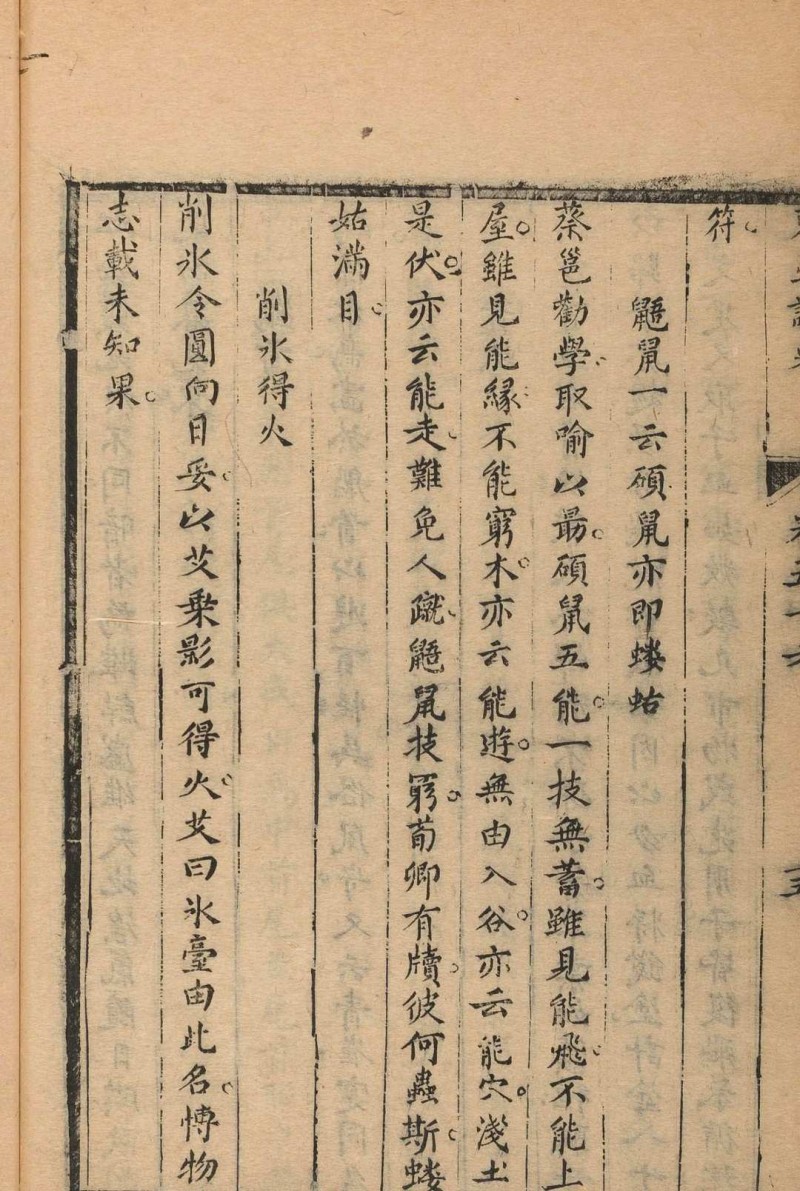 符。
鼯鼠一云碩鼠亦即螻蛄
蔡邕勸學。取喻以最。碩鼠五能。一技無蓄。雖見能飛。不能上
屋。雖見能緣。不能窮木。亦云能遊。無由入谷。亦云能穴。淺土
是伏。亦云能走。難免人蹴。鼯鼠技窮。荀卿有牘。彼何蟲斯。螻
姑滿目。
削氷得火
削氷令圓向日妥。以艾乗影可得火。艾曰氷臺由此名。愽物
志載未知果。